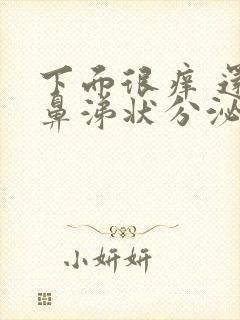 下而很痒还
鼻涕状分泌
小妍妍